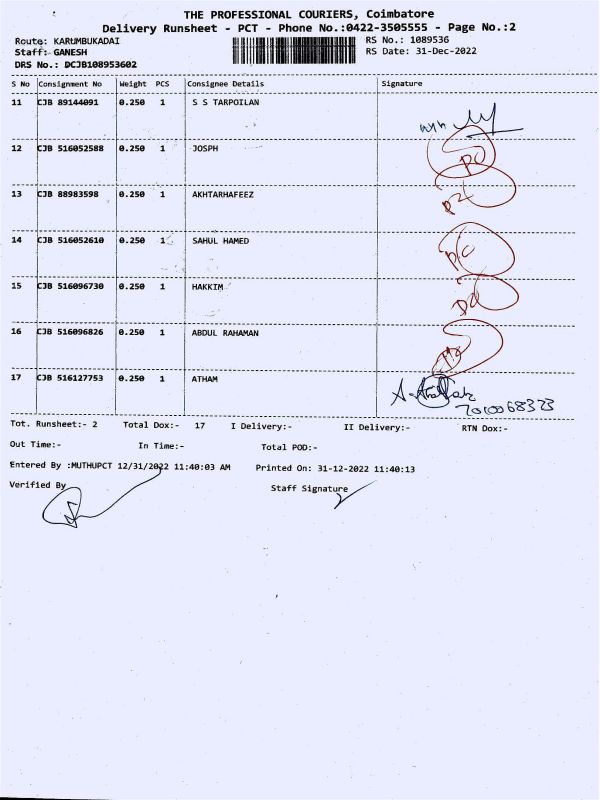 THE PROFESSIONAL COURIERS, Coimbatore
Delivery Runsheet - PCT - Phone No.:0422-3505555 - Page No.:2
Route: KARUMBUKADAI RS No.: 1089536
Staff:- GANESH RS Date: 31-Dec-2022
DRS No.: DCJB108953602
S No Consignment No Weight PCS Consignee Details Signature
11 CJB 89144091 0.250 1 S S TARPOILAN
12 CJB 516052588 0.250 1 JOSPH
13 CJB 88983598 0.250 1 AKHTARHAFEEZ
14 CJB 516052610 0.250 1 SAHUL HAMED
15 CJB 516096730 0.250 1 HAKKIM
16 CJB 516096826 0.250 1 ABDUL RAHAMAN
17 CJB 516127753 0.250 1 ATHAM
Tot. Runsheet:- 2 Total Dox:- 17 I Delivery:- II Delivery:- RTN Dox:-
Out Time:- In Time:- Total POD:-
Entered By :MUTHUPCT 12/31/2022 11:40:03 AM Printed On: 31-12-2022 11:40:13
Verified By Staff Signature